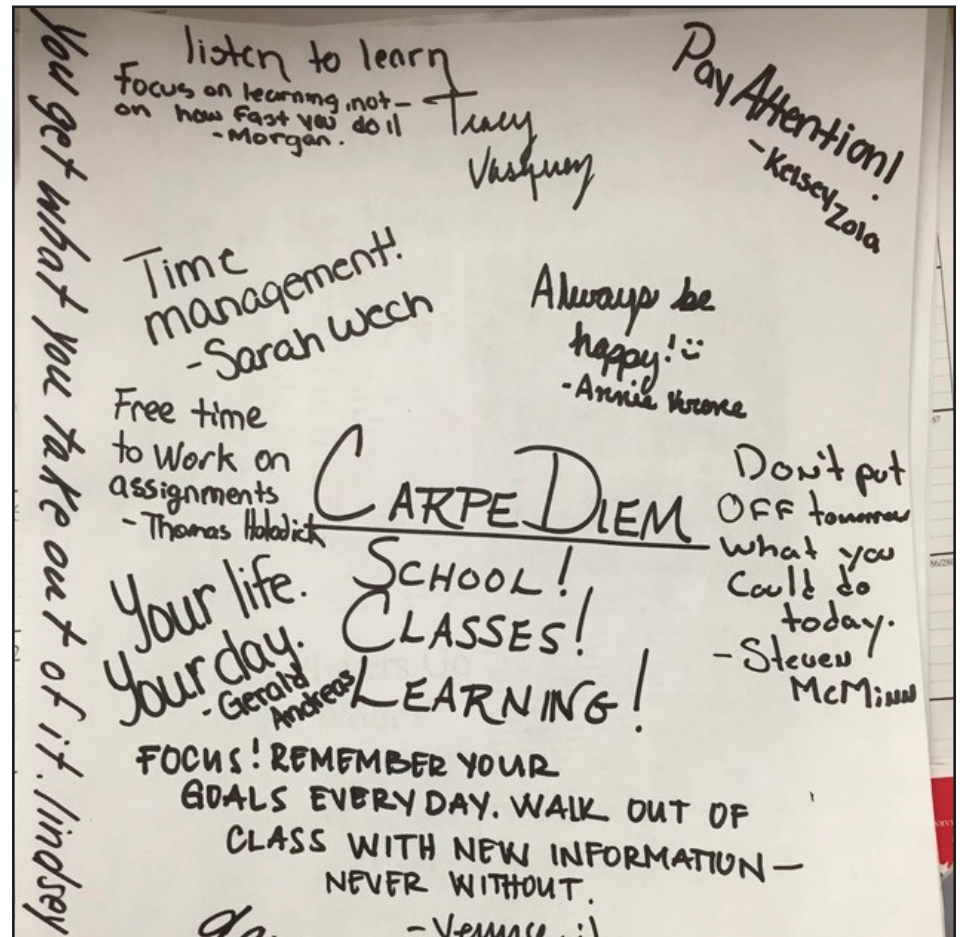 You get what you take out of it. lindsey
listen to learn
Tracy
Vasquez
Focus on learning not
on how fast you do it
-Morgan.
Pay Attention!
-Kelsey Zola
Time
management!
-Sarah Wech
Always be
happy! :)
-Annie Krone
Free time
to Work on
assignments
-Thomas Holodick
CARPE DIEM
SCHOOL!
CLASSES!
LEARNING!
Don't put
OFF tomorrow
what you
Could do
today.
-Steven
McMinn
Your life.
Your day.
-Gerald
Andreas
FOCUS! REMEMBER YOUR
GOALS EVERY DAY. WALK OUT OF
CLASS WITH NEW INFORMATION-
NEVER WITHOUT.